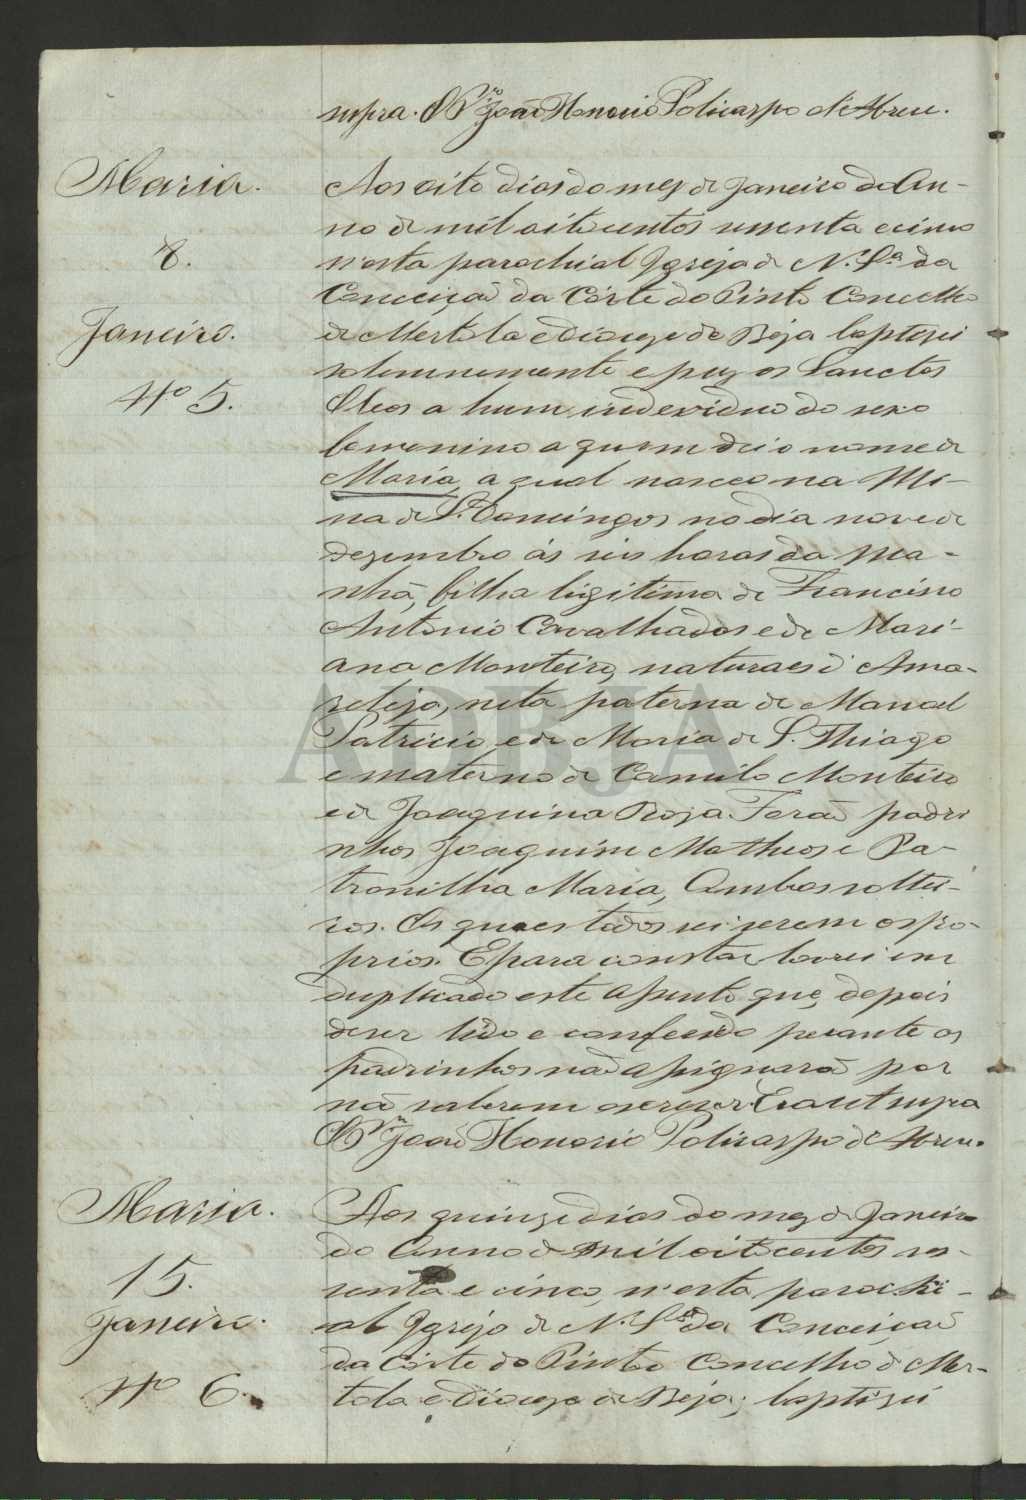 supra. O P.or João Honorio Policarpo d'Abreu.
Maria.
8.
Janeiro.
Nº 5.
Aos oito dias do mez de Janeiro do An-
no de mil oito centos sessenta e cinco
n'esta parochial Igreja de N. Sª. da
Conceição da Côrte do Pinto Concelho
de Mertola e Dioceze de Beja baptizei
solemnemente e puz os Sanctos
Oleos a hum individuo do sexo
femenino a quem dei o nome de
Maria, a qual nasceo na Mi-
na de S. Domingos no dia nove de
dezembro ás seis horas da ma-
nhã, filha legitima de Francisco
Antonio Cavalhados e de Mari-
ana Monteiro, naturaes d'Ama-
releja, neta paterna de Manoel
Patricio e de Maria de S. Thiago
e materna de Camilo Monteiro
e de Joaquina Roja. Forão padri
nhos Joaquim Matheos e Pa-
tronilha Maria, Ambos soltei-
ros. Os quaes todos sei serem os pro-
prios. E para constar lavrei em
duplicado este assento que, depois
de ser lido e conferido perante os
padrinhos não assignarão por
não saberem escrever. Era ut supra
O P.or João Honorio Policarpo d'Abreu.
Maria.
15.
Janeiro.
Nº 6.
Aos quinze dias do mez de Janeiro
do Anno de mil oito centos ses-
senta e cinco, n'esta parochi-
al Igreja de N. Sra. da Conceição
da Côrte do Pinto Concelho de Mer-
tola e Dioceze de Beja; baptizei
ADBJA